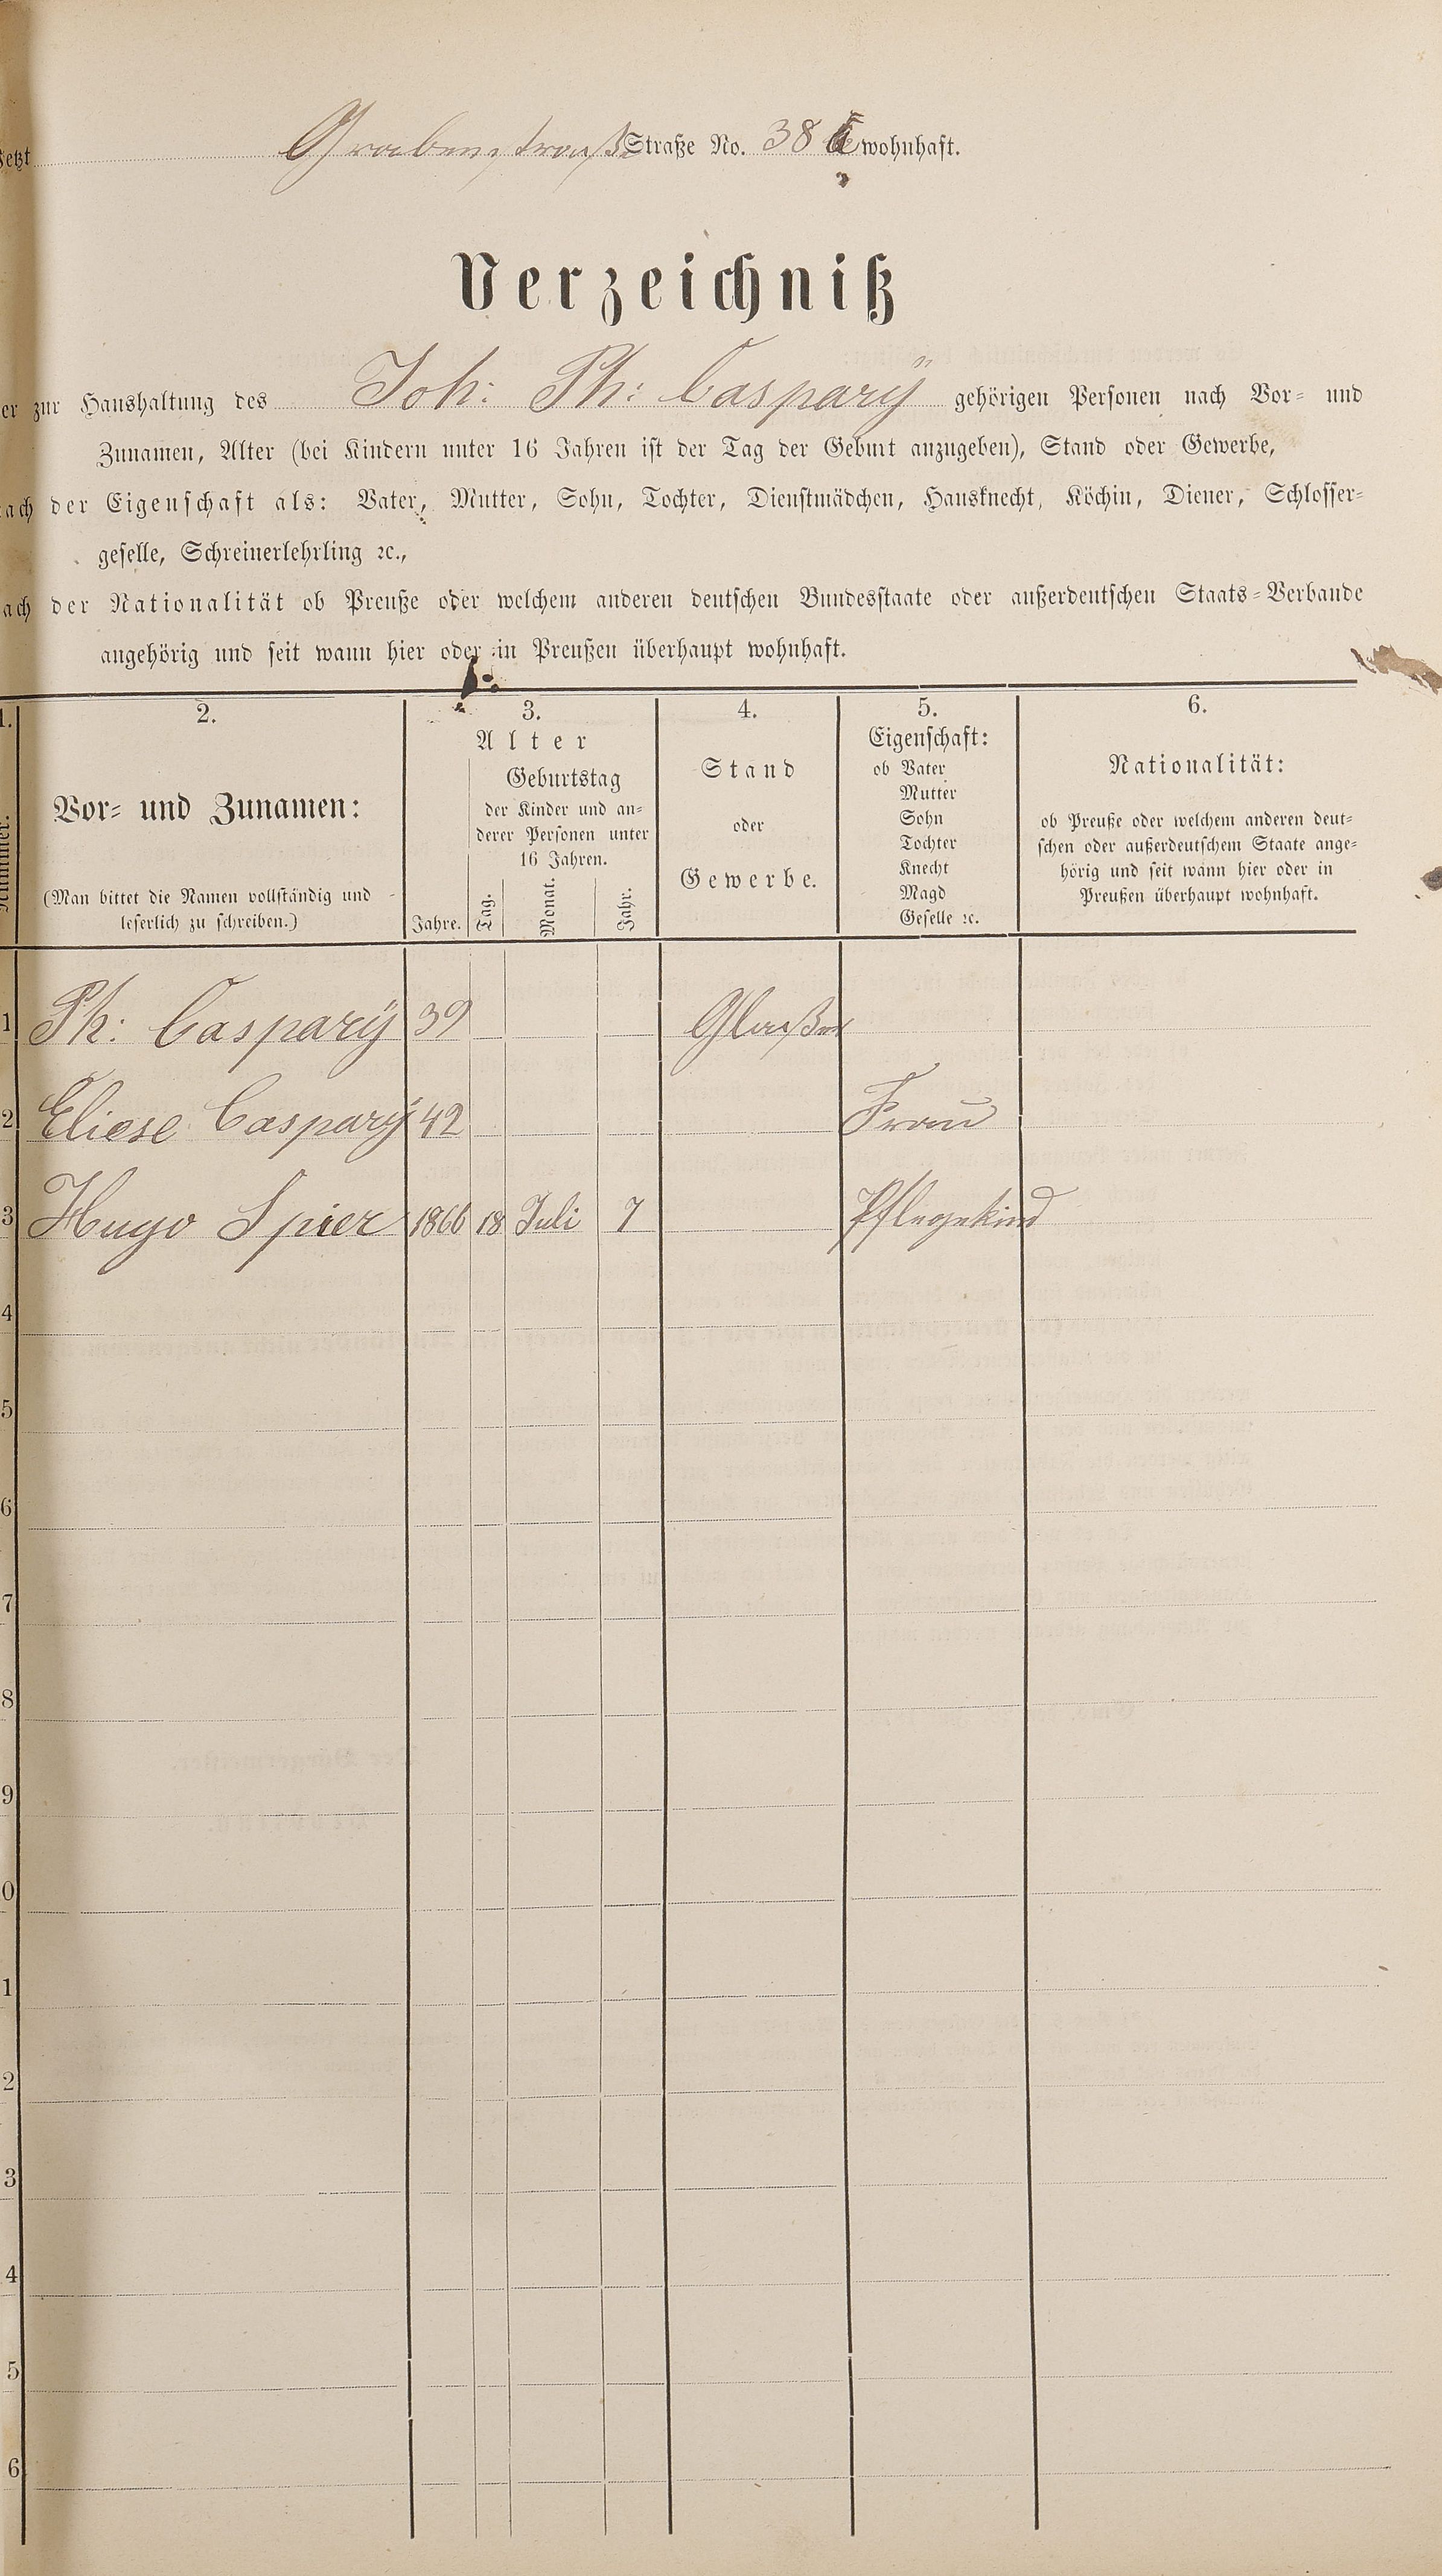 Jetzt Grabenstraße Straße No. 38 wohnhaft.
Verzeichniß
er zur Haushaltung des Joh: Ph: Casparÿ gehörigen Personen nach Vor- und
Zunamen, Alter (bei Kindern unter 16 Jahren ist der Tag der Geburt anzugeben), Stand oder Gewerbe,
ach der Eigenschaft als: Vater, Mutter, Sohn, Tochter, Dienstmädchen, Hausknecht, Köchin, Diener, Schlosser-
geselle, Schreinerlehrling ꝛc.,
ach der Nationalität ob Preuße oder welchem anderen deutschen Bundesstaate oder außerdeutschen Staats-Verbande
angehörig und seit wann hier oder in Preußen überhaupt wohnhaft.
1. 2. 3. 4. 5. 6.
Nummer.
Vor- und Zunamen:
(Man bittet die Namen vollständig und
leserlich zu schreiben.)
Alter
Geburtstag
der Kinder und an-
derer Personen unter
16 Jahren.
Jahre. Tag. Monat. Jahr.
Stand
oder
Gewerbe.
Eigenschaft:
ob Vater
Mutter
Sohn
Tochter
Knecht
Magd
Geselle ꝛc.
Nationalität:
ob Preuße oder welchem anderen deut-
schen oder außerdeutschem Staate ange-
hörig und seit wann hier oder in
Preußen überhaupt wohnhaft.
1 Ph: Casparÿ 39 Glaßer
2 Eliese Casparÿ 42 Frau
3 Hugo Spier 1866 18 Juli 7 Pflegekind
4
5
6
7
8
9
0
1
2
3
4
5
6